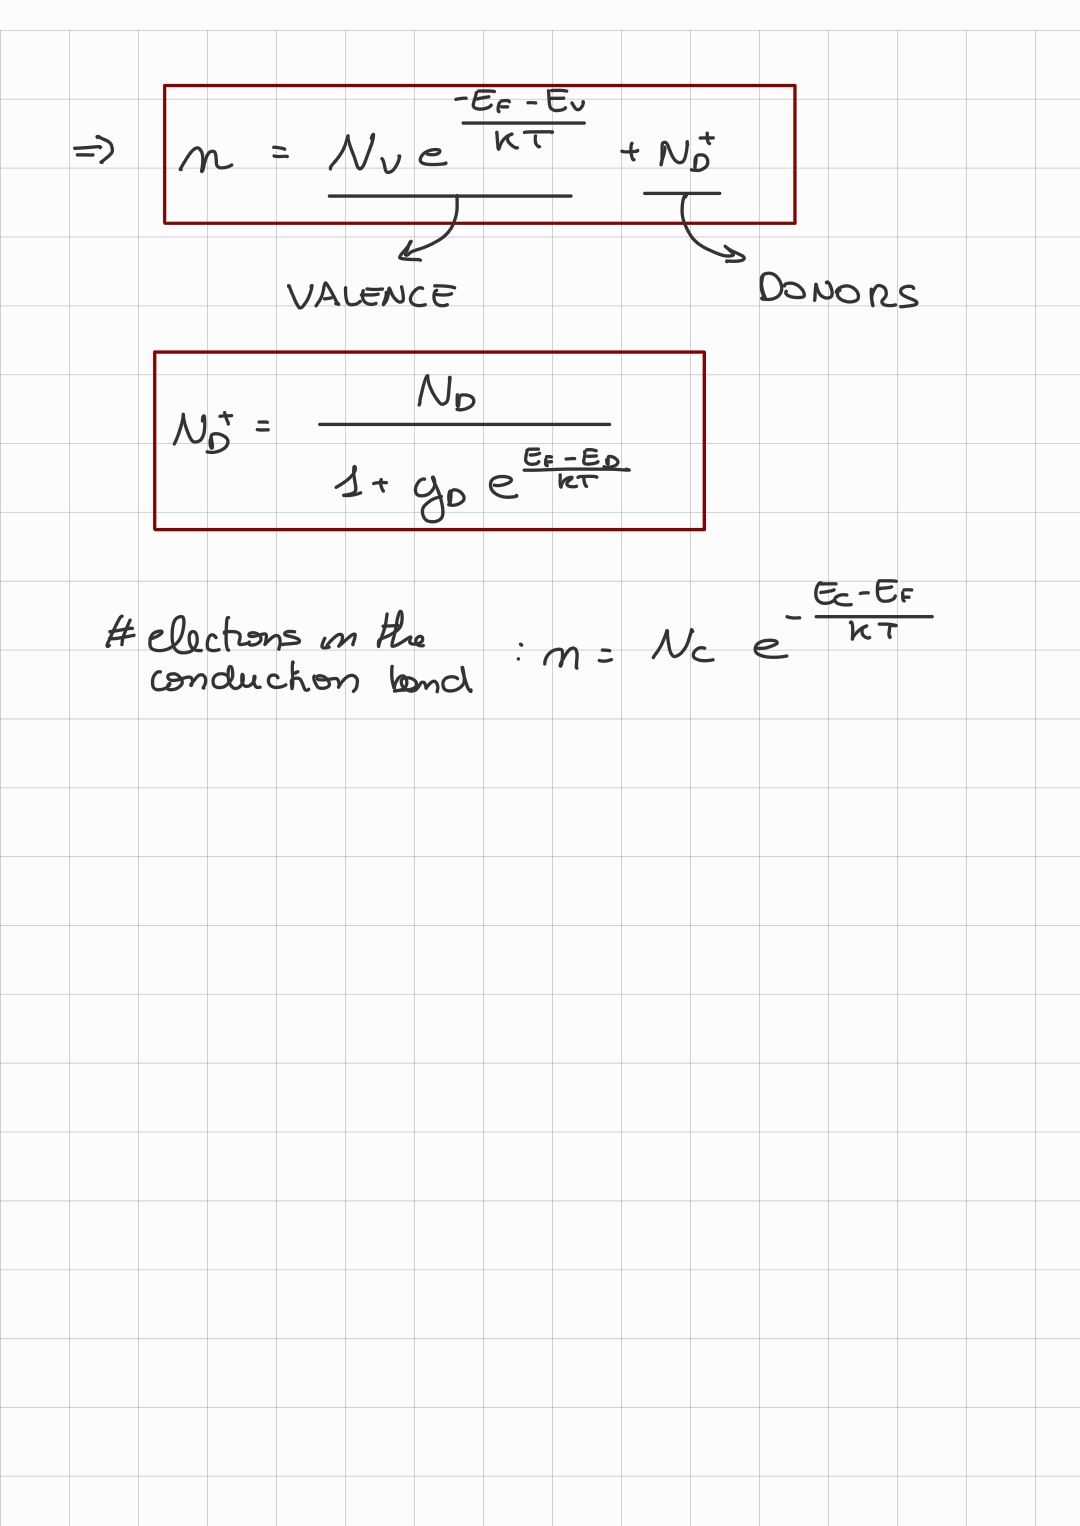 ⇒ n = N_V e^{\frac{-E_F - E_V}{KT}} + N_D^+
VALENCE DONORS
N_D^+ = \frac{N_D}{1 + g_D e^{\frac{E_F - E_D}{KT}}}
# electrons in the
conduction band : n = N_C e^{-\frac{E_C - E_F}{KT}}